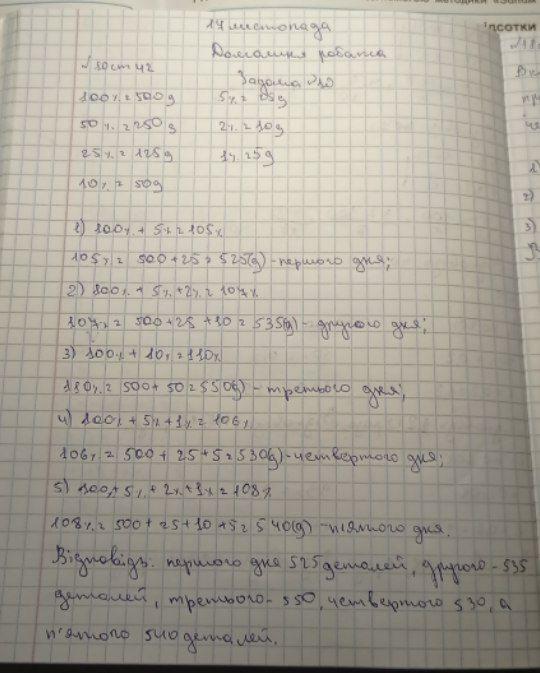 методики
ПСОТКИ
17 листопада
Домашня робота
№10 ст 42
Задача №10
100% = 500g
5% = 25g
50% = 250g
2% = 10g
25% = 125g
1% = 5g
10% = 50g
1) 100% + 5% = 105%
105% = 500 + 25 = 525(g) - першого дня;
2) 100% + 5% + 2% = 107%
107% = 500 + 25 + 10 = 535(g) - другого дня;
3) 100% + 10% = 110%
110% = 500 + 50 = 550(g) - третього дня;
4) 100% + 5% + 1% = 106%
106% = 500 + 25 + 5 = 530(g) - четвертого дня;
5) 100% + 5% + 2% + 1% = 108%
108% = 500 + 25 + 10 + 5 = 540(g) - п'ятого дня.
Відповідь: першого дня 525 деталей, другого - 535
деталей, третього - 550, четвертого 530, а
п'ятого 540 деталей.
1)
2)
3)